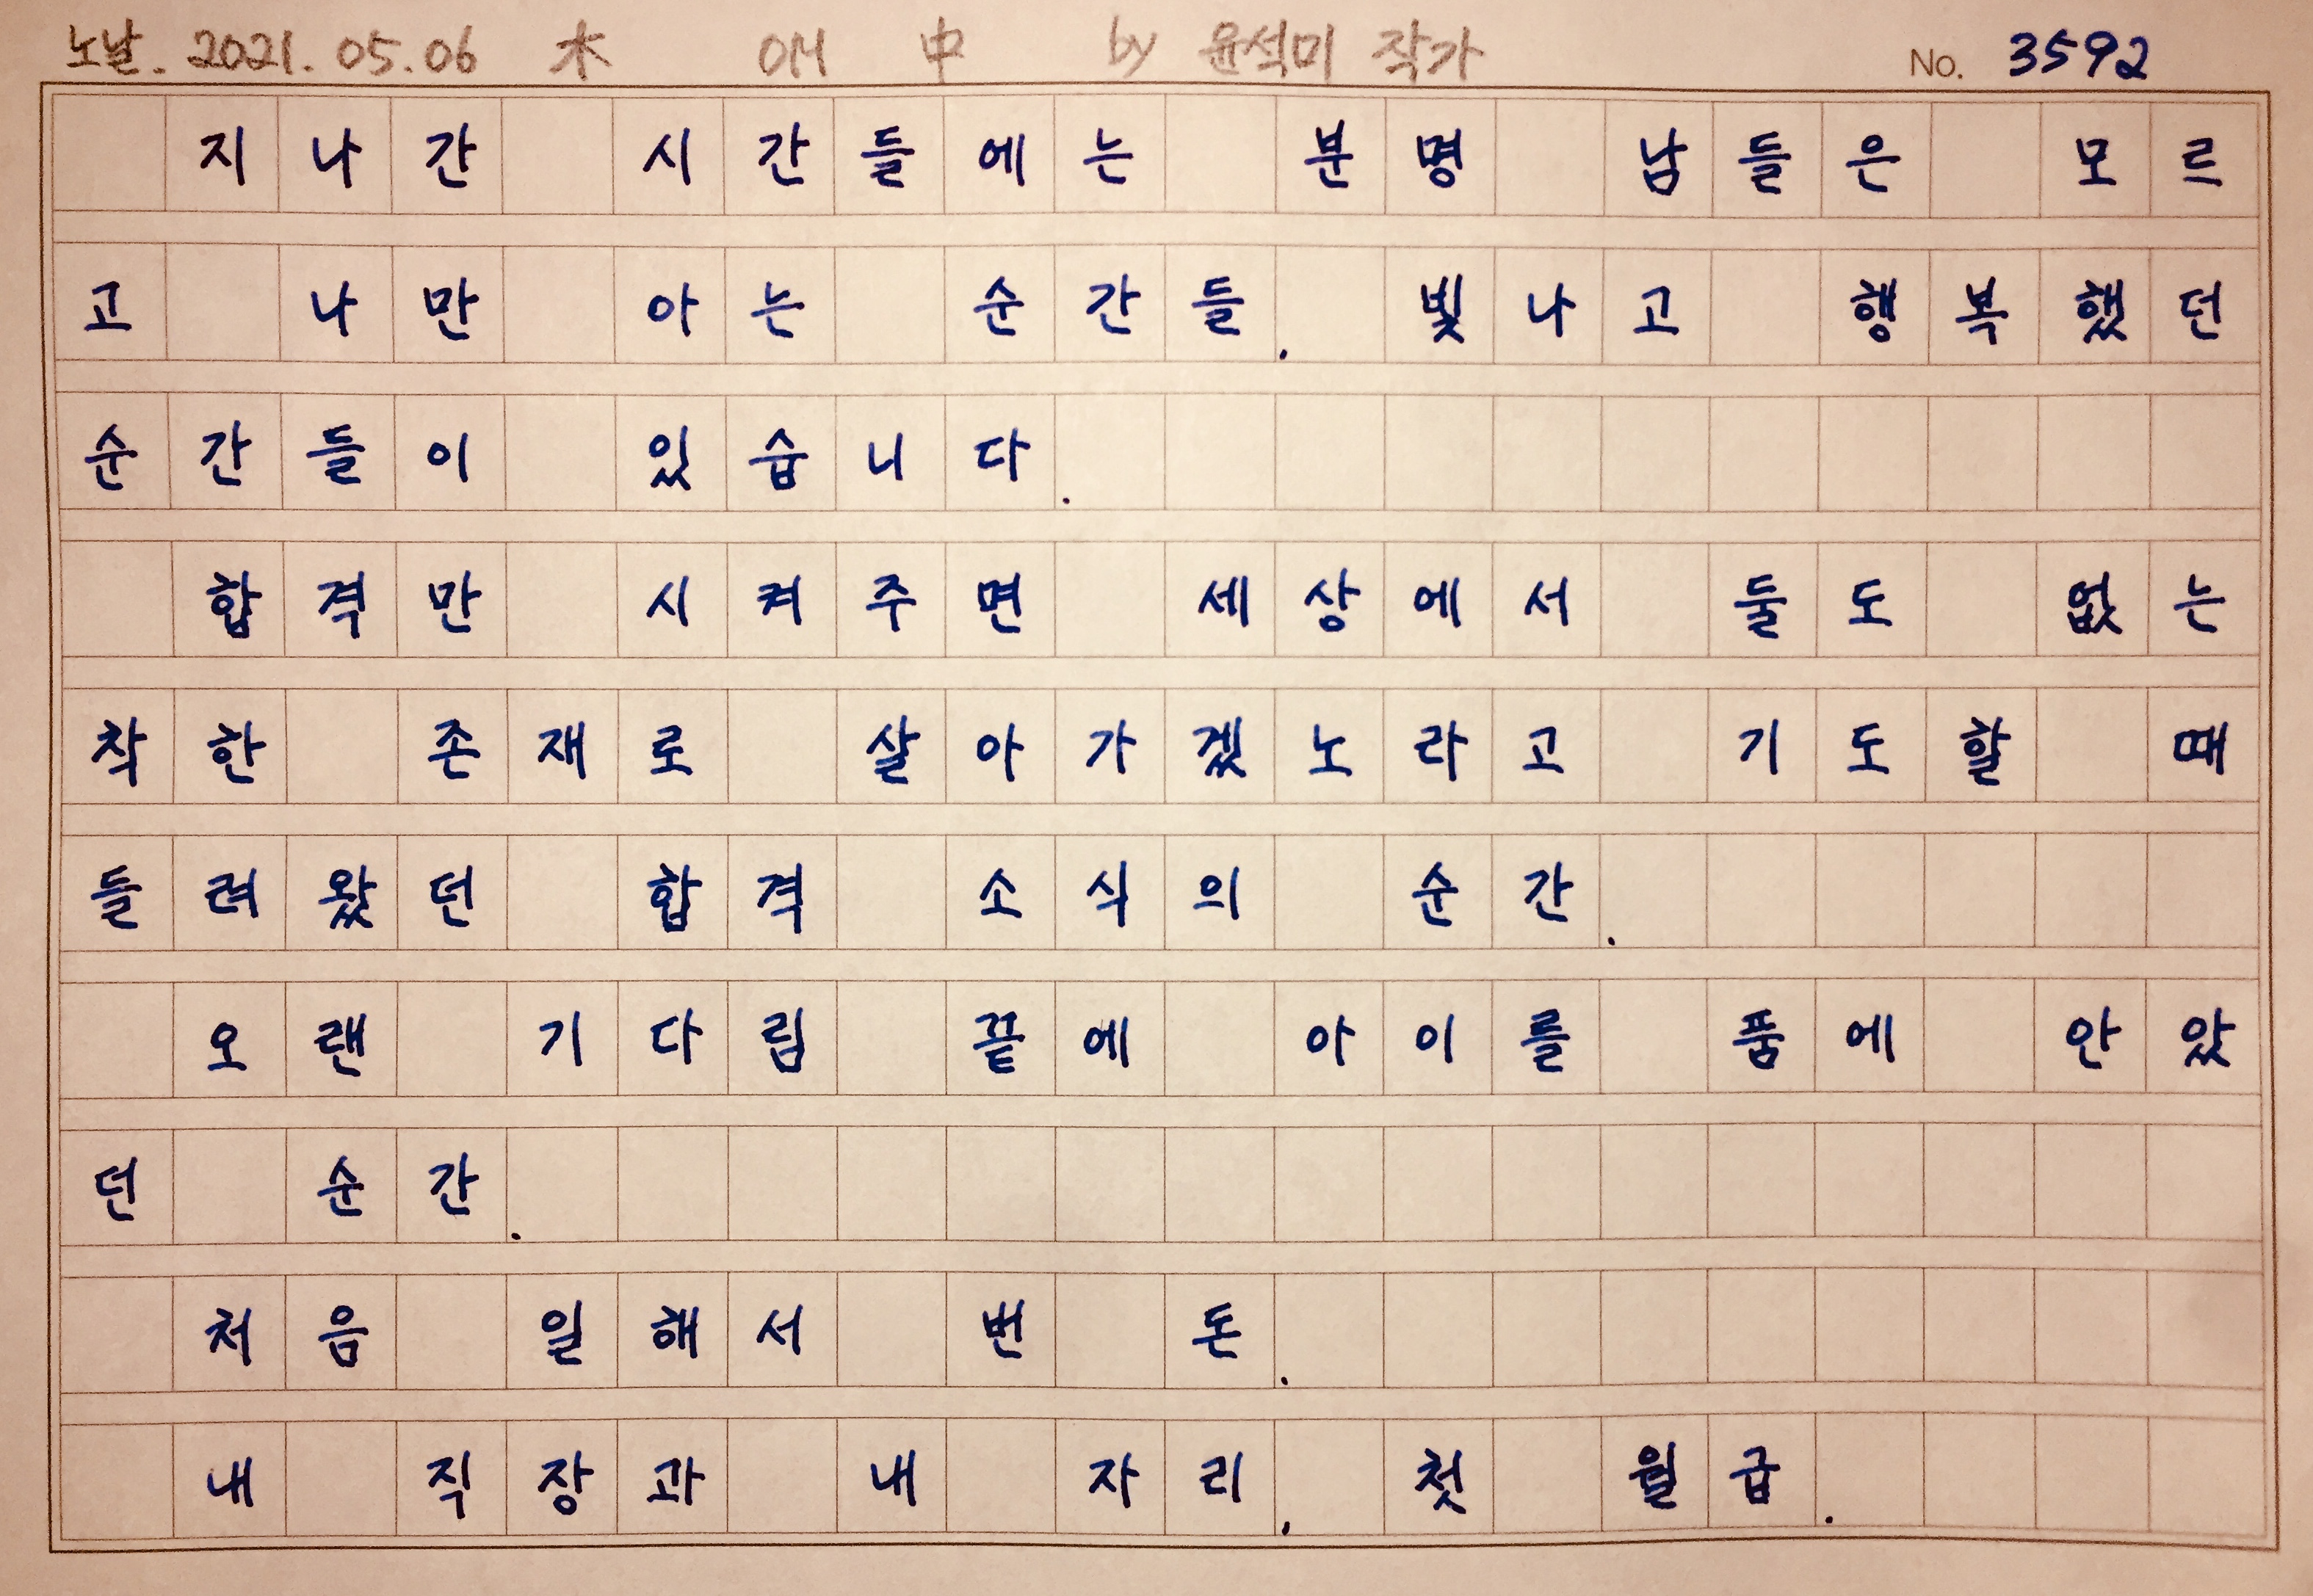 노날. 2021. 05. 06 木 OM 中 by 윤석미 작가 No. 3592
지나간 시간들에는 분명 남들은 모르
고 나만 아는 순간들, 빛나고 행복했던
순간들이 있습니다.
합격만 시켜주면 세상에서 둘도 없는
착한 존재로 살아가겠노라고 기도할 때
들려왔던 합격 소식의 순간.
오랜 기다림 끝에 아이를 품에 안았
던 순간.
처음 일해서 번 돈.
내 직장과 내 자리, 첫 월급.